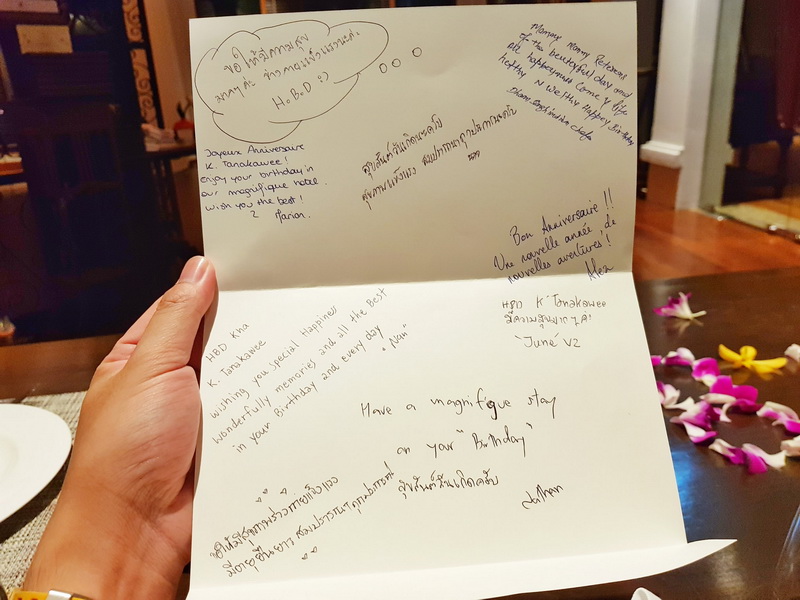 ขอให้มีความสุข
มากๆค่ะ ร่างกายแข็งแรงนะคะ
H.B.D :)
Joyeux Anniversaire
K. Tanakawee!
enjoy your birthday in
our magnifique hotel.
wish you the best!
Marion.
สุขสันต์วันเกิดนะครับ
สุขภาพแข็งแรง สมปรารถนาทุกประการนะครับ
of the beuteyful day and
all happeyness Come y life
helthy N welthy Happey Birthday
Bon Anniversaire !!
Une nouvelle année, de
nouvelles aventures !
Alex
HBD K' Tanakawee
มีความสุขมากๆค่ะ
"June" V2
HBD Kha
K. Tanakawee
wishing you special Happiness
wonderfully memories and all the Best
in your Birthday and every day
"Nan"
Have a magnifique stay
on your "Birthday"
สุขสันต์วันเกิดครับ
ขอให้มีสุขภาพร่างกายแข็งแรง
มีอายุยืนยาว สมปรารถนาทุกประการค่ะ